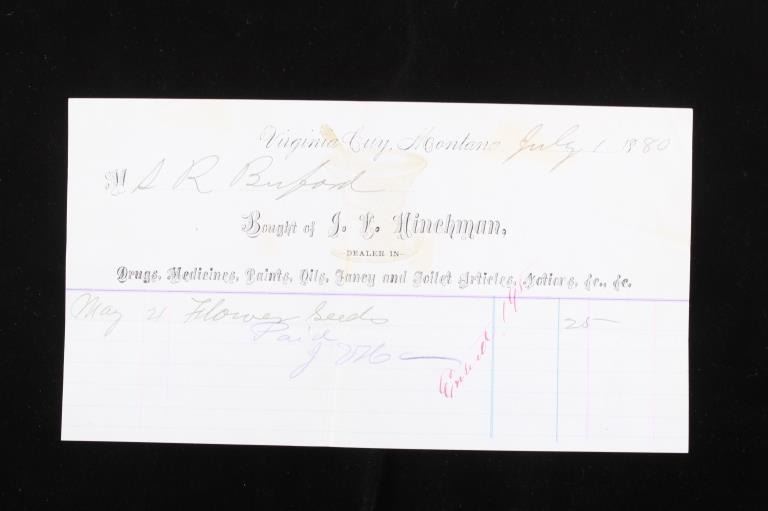 Virginia City, Montana July 1 1880
M S R Buford
Bought of J. F. Hinchman,
DEALER IN
Drugs, Medicines, Paints, Oils, Fancy and Toilet Articles, Notions, &c., &c.
May 21 Flower Seeds 25
Paid
Entered